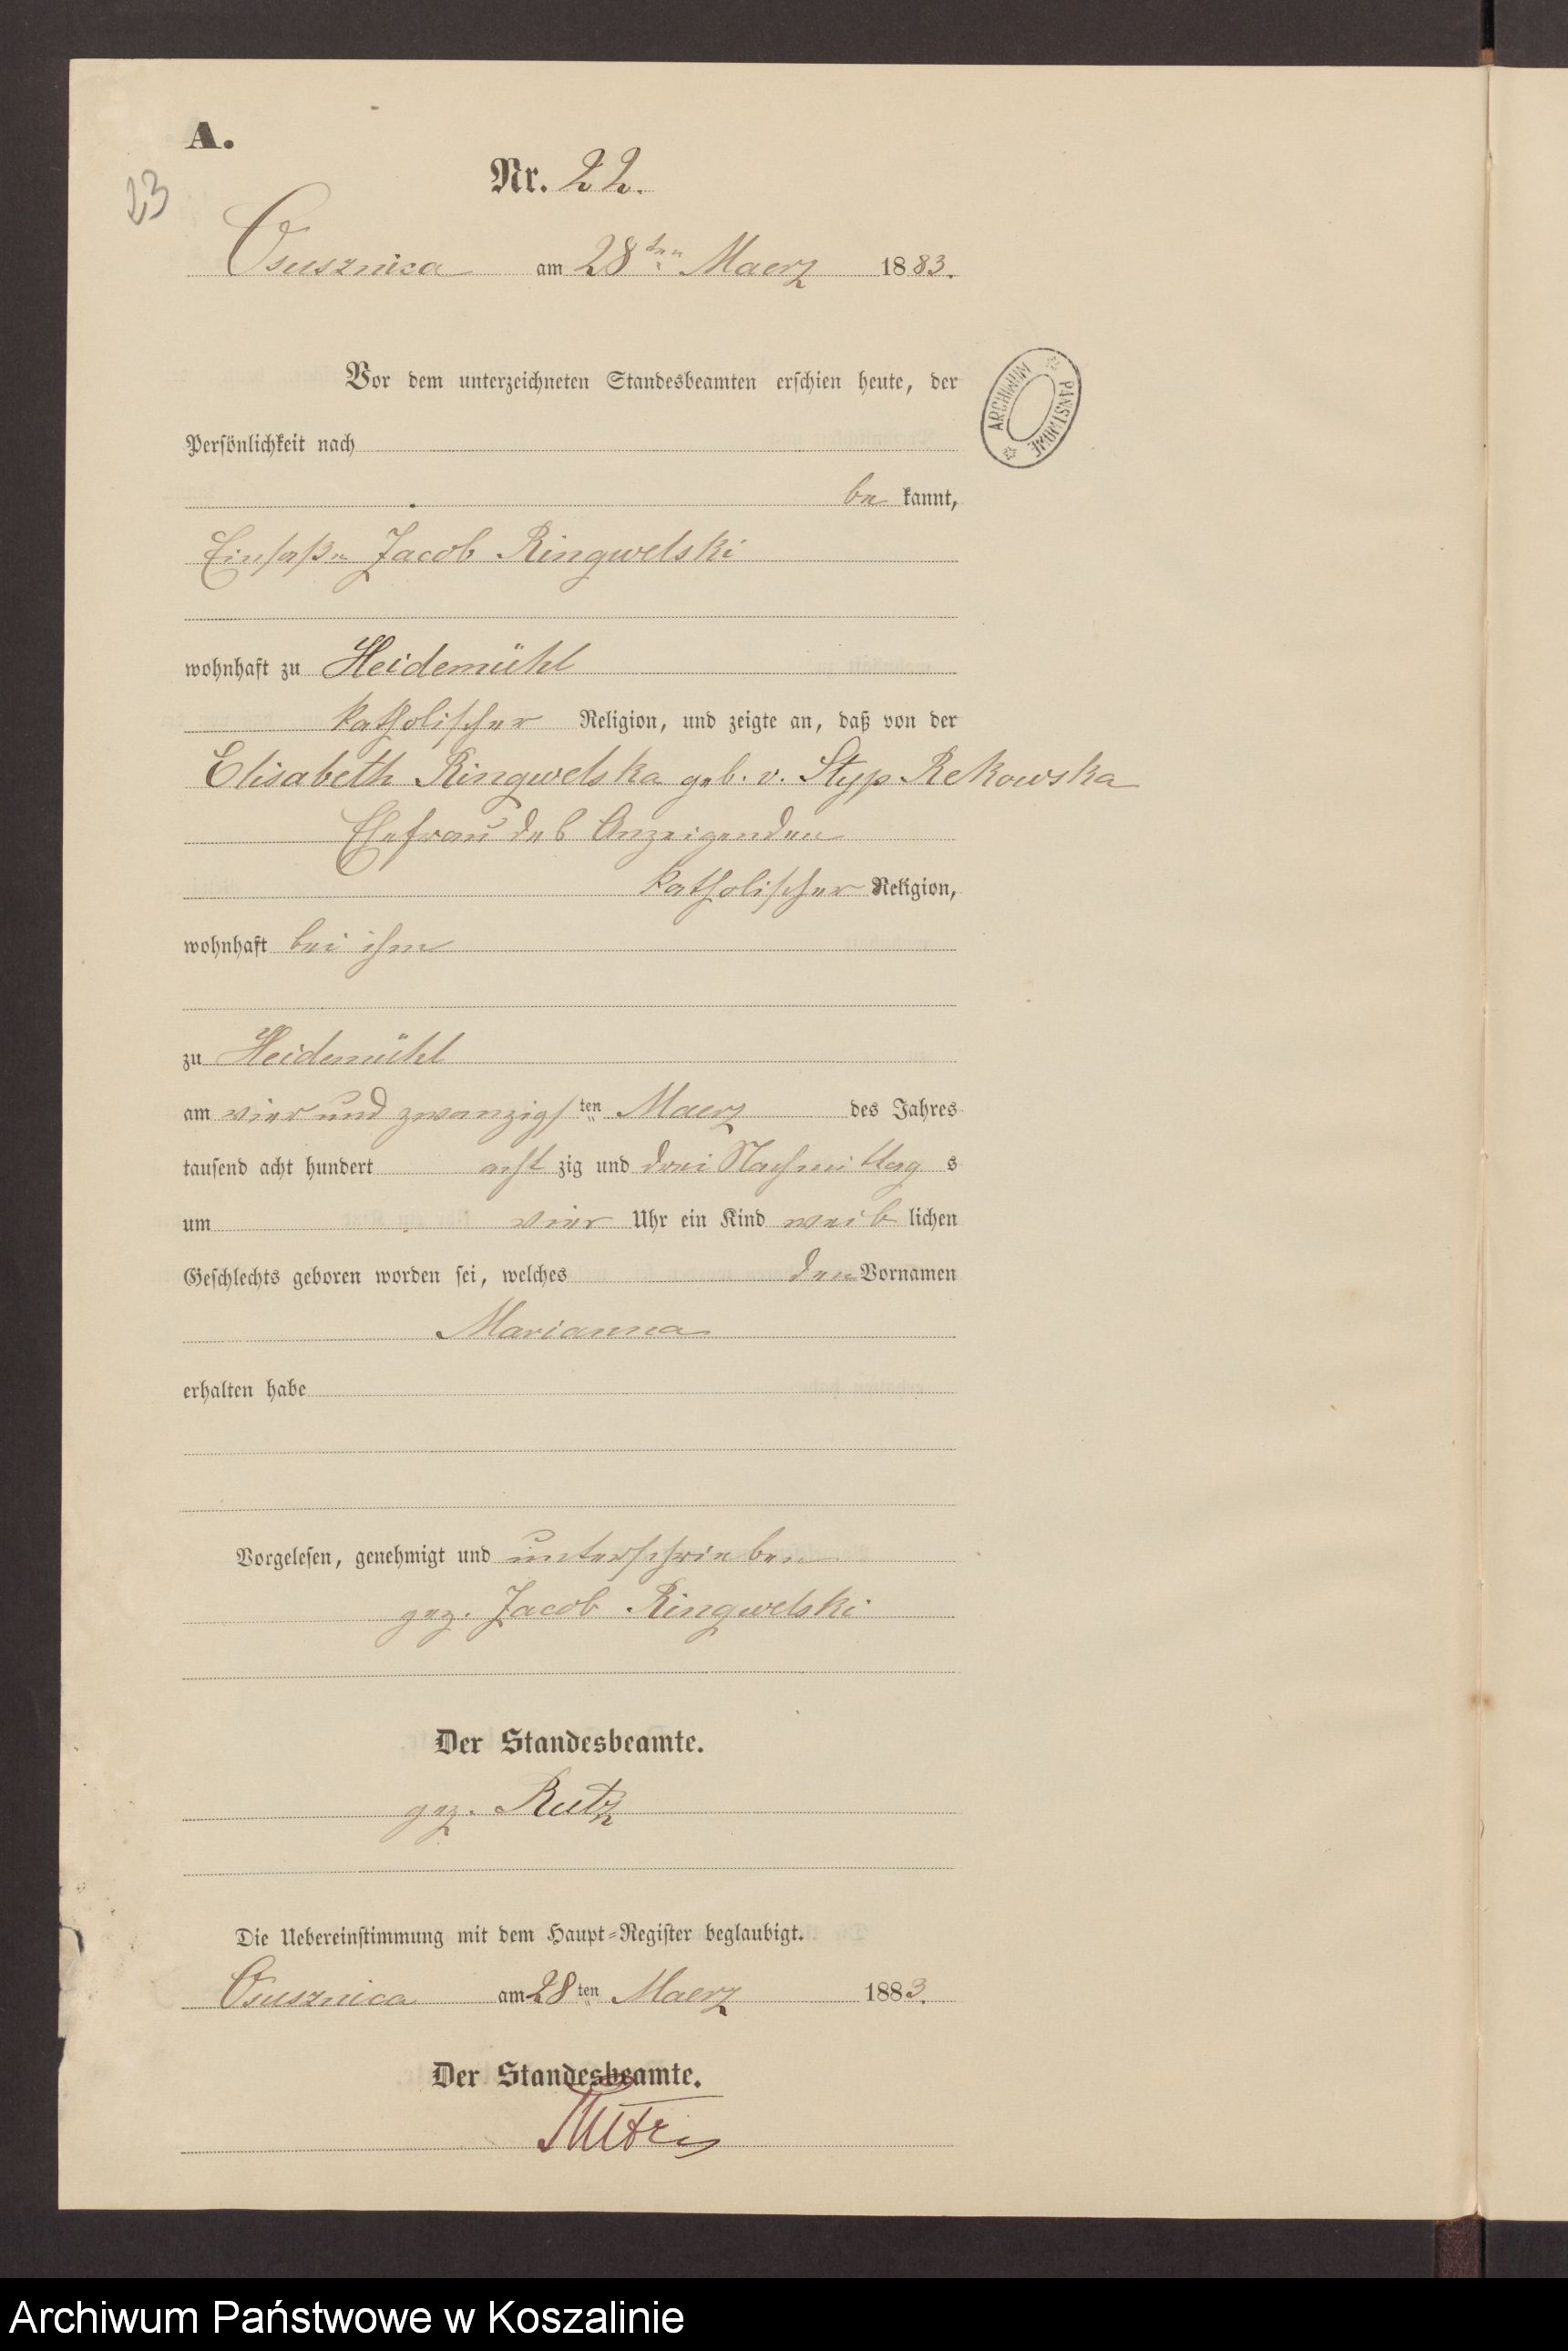 A.
23
Nr. 22.
Osusznica am 28ten Maerz 1883.
Vor dem unterzeichneten Standesbeamten erschien heute, der
Persönlichkeit nach
be kannt,
Einsaße Jacob Ringwelski
wohnhaft zu Heidemühl
katholischer Religion, und zeigte an, daß von der
Elisabeth Ringwelska geb. v. Styp Rekowska
Ehefrau des Anzeigenden
katholischer Religion,
wohnhaft bei ihm
zu Heidemühl
am vier und zwanzigsten Maerz des Jahres
tausend acht hundert acht zig und drei Nachmittag s
um vier Uhr ein Kind weib lichen
Geschlechts geboren worden sei, welches den Vornamen
Marianna
erhalten habe
Vorgelesen, genehmigt und unterschrieben
gez. Jacob Ringwelski
Der Standesbeamte.
gez. Rutz
Die Uebereinstimmung mit dem Haupt-Register beglaubigt.
Osusznica am 28ten Maerz 1883.
Der Standesbeamte.
ARCHIWUM PAŃSTWOWE
Archiwum Państwowe w Koszalinie